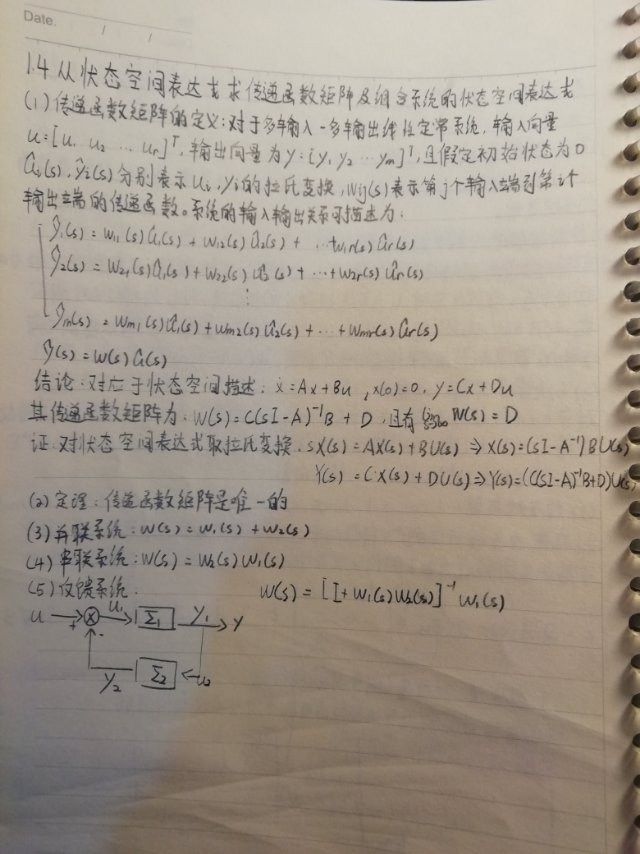 Date. / /
1.4 从状态空间表达式求传递函数矩阵及组合系统的状态空间表达式
(1) 传递函数矩阵的定义:对于多输入-多输出线性定常系统,输入向量
u=[u₁ u₂ … uᵣ]ᵀ,输出向量为y=[y₁ y₂ … yₘ]ᵀ,且假定初始状态为0
ûⱼ(s),ŷᵢ(s)分别表示uⱼ,yᵢ的拉氏变换,wᵢⱼ(s)表示第j个输入端到第i个
输出端的传递函数。系统的输入输出关系可描述为:
ŷ₁(s)=w₁₁(s)û₁(s)+w₁₂(s)û₂(s)+…w₁ᵣ(s)ûᵣ(s)
ŷ₂(s)=w₂₁(s)û₁(s)+w₂₂(s)û₂(s)+…+w₂ᵣ(s)ûᵣ(s)
⋮
ŷₘ(s)=wₘ₁(s)û₁(s)+wₘ₂(s)û₂(s)+…+wₘᵣ(s)ûᵣ(s)
ŷ(s)=w(s)û(s)
结论:对应于状态空间描述:ẋ=Ax+Bu,x(0)=0,y=Cx+Du
其传递函数矩阵为:W(s)=C(sI-A)⁻¹B+D,且有 lim s→∞ W(s)=D
证:对状态空间表达式取拉氏变换.sX(s)=AX(s)+BU(s)⇒X(s)=(sI-A⁻¹)BU(s)
Y(s)=C·X(s)+DU(s)⇒Y(s)=(C(sI-A)⁻¹B+D)U(s)
(2) 定理:传递函数矩阵是唯一的
(3) 并联系统:W(s)=W₁(s)+W₂(s)
(4) 串联系统:W(s)=W₂(s)W₁(s)
(5) 反馈系统: W(s)=[I+W₁(s)W₂(s)]⁻¹W₁(s)
u + - u₁ Σ₁ y₁ y
y₂ Σ₂ u₂